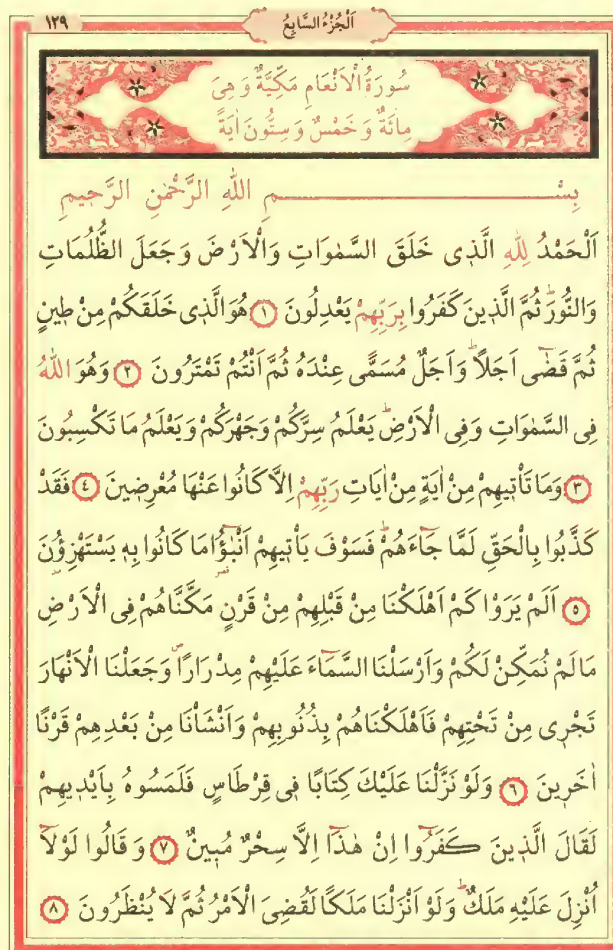 اَلْجُزْءُ السَّابِعُ
١٢٩
سُورَةُ الْاَنْعَامِ مَكِّيَّةٌ وَهِىَ
مِائَةٌ وَخَمْسٌ وَسِتُّونَ اٰيَةً
بِسْمِ اللهِ الرَّحْمٰنِ الرَّحِيمِ
اَلْحَمْدُ لِلّٰهِ الَّذٖى خَلَقَ السَّمٰوَاتِ وَالْاَرْضَ وَجَعَلَ الظُّلُمَاتِ
وَالنُّورَۜ ثُمَّ الَّذٖينَ كَفَرُوا بِرَبِّهِمْ يَعْدِلُونَ ﴿١﴾ هُوَ الَّذٖى خَلَقَكُمْ مِنْ طٖينٍ
ثُمَّ قَضٰٓى اَجَلًاۜ وَاَجَلٌ مُسَمًّى عِنْدَهُ ثُمَّ اَنْتُمْ تَمْتَرُونَ ﴿٢﴾ وَهُوَ اللّٰهُ
فِى السَّمٰوَاتِ وَفِى الْاَرْضِۜ يَعْلَمُ سِرَّكُمْ وَجَهْرَكُمْ وَيَعْلَمُ مَا تَكْسِبُونَ
﴿٣﴾ وَمَا تَأْتٖيهِمْ مِنْ اٰيَةٍ مِنْ اٰيَاتِ رَبِّهِمْ اِلَّا كَانُوا عَنْهَا مُعْرِضٖينَ ﴿٤﴾ فَقَدْ
كَذَّبُوا بِالْحَقِّ لَمَّا جَٓاءَهُمْۜ فَسَوْفَ يَأْتٖيهِمْ اَنْبٰٓؤُا مَا كَانُوا بِهٖ يَسْتَهْزِؤُنَ
﴿٥﴾ اَلَمْ يَرَوْا كَمْ اَهْلَكْنَا مِنْ قَبْلِهِمْ مِنْ قَرْنٍ مَكَّنَّاهُمْ فِى الْاَرْضِ
مَا لَمْ نُمَكِّنْ لَكُمْ وَاَرْسَلْنَا السَّمَٓاءَ عَلَيْهِمْ مِدْرَارًا وَجَعَلْنَا الْاَنْهَارَ
تَجْرٖى مِنْ تَحْتِهِمْ فَاَهْلَكْنَاهُمْ بِذُنُوبِهِمْ وَاَنْشَأْنَا مِنْ بَعْدِهِمْ قَرْنًا
اٰخَرٖينَ ﴿٦﴾ وَلَوْ نَزَّلْنَا عَلَيْكَ كِتَابًا فٖى قِرْطَاسٍ فَلَمَسُوهُ بِاَيْدٖيهِمْ
لَقَالَ الَّذٖينَ كَفَرُٓوا اِنْ هٰذَٓا اِلَّا سِحْرٌ مُبٖينٌ ﴿٧﴾ وَقَالُوا لَوْلَٓا
اُنْزِلَ عَلَيْهِ مَلَكٌۜ وَلَوْ اَنْزَلْنَا مَلَكًا لَقُضِىَ الْاَمْرُ ثُمَّ لَا يُنْظَرُونَ ﴿٨﴾